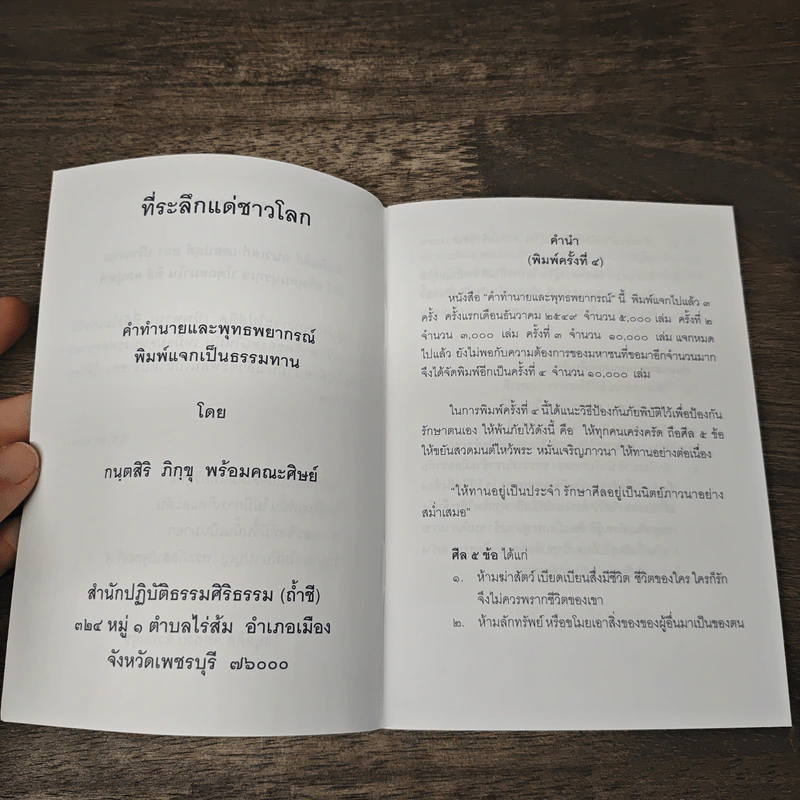 ที่ระลึกแด่ชาวโลก
คำทำนายและพุทธพยากรณ์
พิมพ์แจกเป็นธรรมทาน
โดย
กนฺตสิริ ภิกฺขุ พร้อมคณะศิษย์
สำนักปฏิบัติธรรมศิริธรรม (ถ้ำชี)
๓๒๔ หมู่ ๑ ตำบลไร่ส้ม อำเภอเมือง
จังหวัดเพชรบุรี ๗๖๐๐๐
คำนำ
(พิมพ์ครั้งที่ ๔)
หนังสือ "คำทำนายและพุทธพยากรณ์" นี้ พิมพ์แจกไปแล้ว ๓
ครั้ง ครั้งแรกเดือนธันวาคม ๒๕๔๙ จำนวน ๕,๐๐๐ เล่ม ครั้งที่ ๒
จำนวน ๓,๐๐๐ เล่ม ครั้งที่ ๓ จำนวน ๑๐,๐๐๐ เล่ม แจกหมด
ไปแล้ว ยังไม่พอกับความต้องการของมหาชนที่ขอมาอีกจำนวนมาก
จึงได้จัดพิมพ์อีกเป็นครั้งที่ ๔ จำนวน ๑๐,๐๐๐ เล่ม
ในการพิมพ์ครั้งที่ ๔ นี้ได้แนะวิธีป้องกันภัยพิบัติไว้เพื่อป้องกัน
รักษาตนเอง ให้พ้นภัยไว้ดังนี้ คือ ให้ทุกคนเคร่งครัด ถือศีล ๕ ข้อ
ให้ขยันสวดมนต์ไหว้พระ หมั่นเจริญภาวนา ให้ทานอย่างต่อเนื่อง
"ให้ทานอยู่เป็นประจำ รักษาศีลอยู่เป็นนิตย์ภาวนาอย่าง
สม่ำเสมอ"
ศีล ๕ ข้อ ได้แก่
๑. ห้ามฆ่าสัตว์ เบียดเบียนสิ่งมีชีวิต ชีวิตของใคร ใครก็รัก
จึงไม่ควรพรากชีวิตของเขา
๒. ห้ามลักทรัพย์ หรือขโมยเอาสิ่งของของผู้อื่นมาเป็นของตน